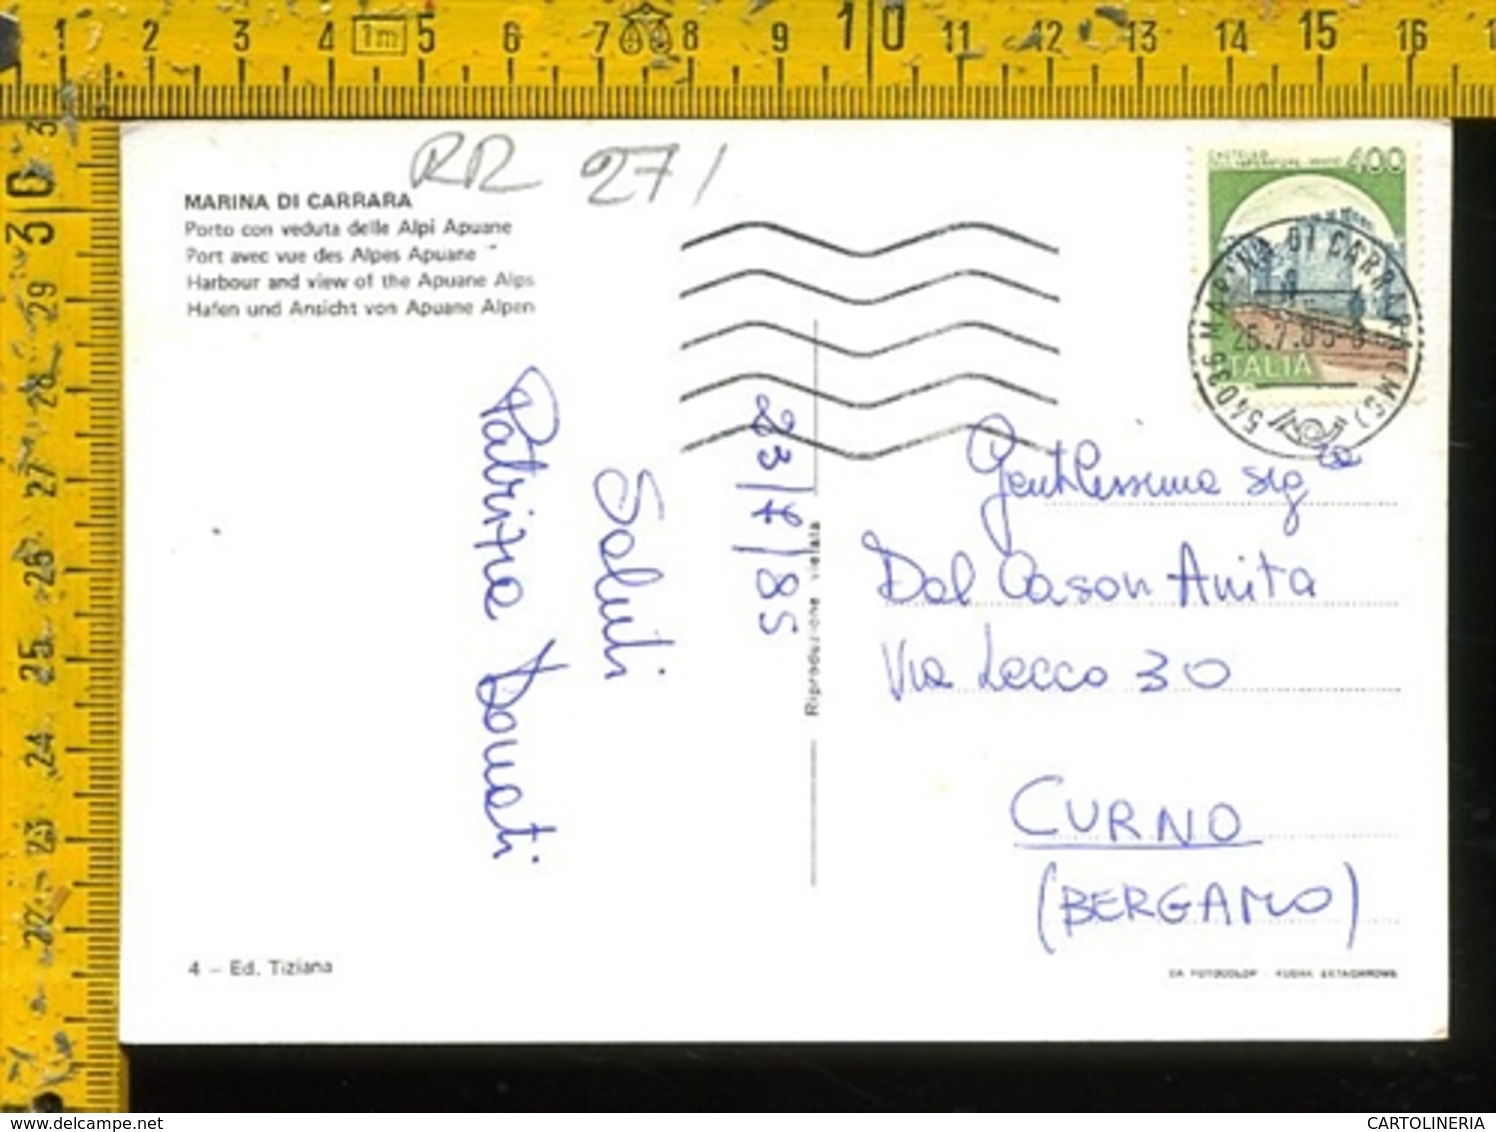 1 2 3 4 1m 5 6 7 8 9 10 11 12 13 14 15 16
30 29 28 27 26 25 24 23 22
RR 271
MARINA DI CARRARA
Porto con veduta delle Alpi Apuane
Port avec vue des Alpes Apuane
Harbour and view of the Apuane Alps
Hafen und Ansicht von Apuane Alpen
400
ITALIA
54036 MARINA DI CARRARA (MS)
25.7.85-8
23/7/85
Saluti
Patrizia Donati
Riproduzione vietata
Gentilissima sig.ra
Dal Cason Anita
Via Lecco 30
CURNO
(BERGAMO)
4 - Ed. Tiziana
DA FOTOCOLOR - KODAK EKTACHROME
www.delcampe.net
CARTOLINERIA